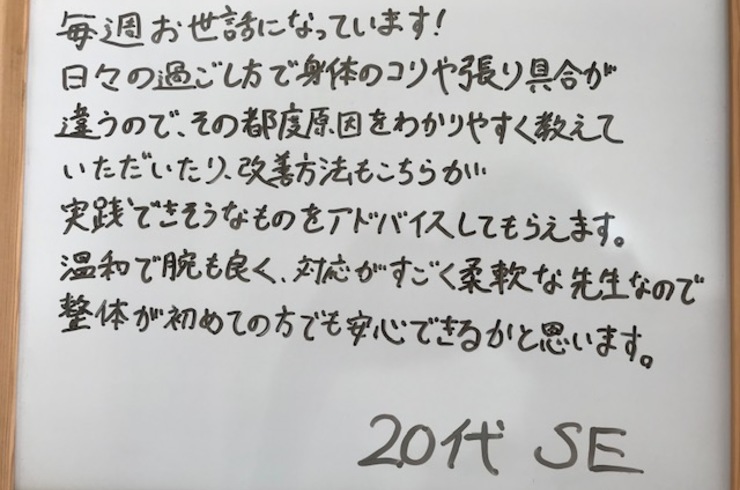 毎週お世話になっています!
日々の過ごし方で身体のコリや張り具合が
違うので、その都度原因をわかりやすく教えて
いただいたり、改善方法もこちらが
実践できそうなものをアドバイスしてもらえます。
温和で腕も良く、対応がすごく柔軟な先生なので
整体が初めての方でも安心できるかと思います。
20代 SE